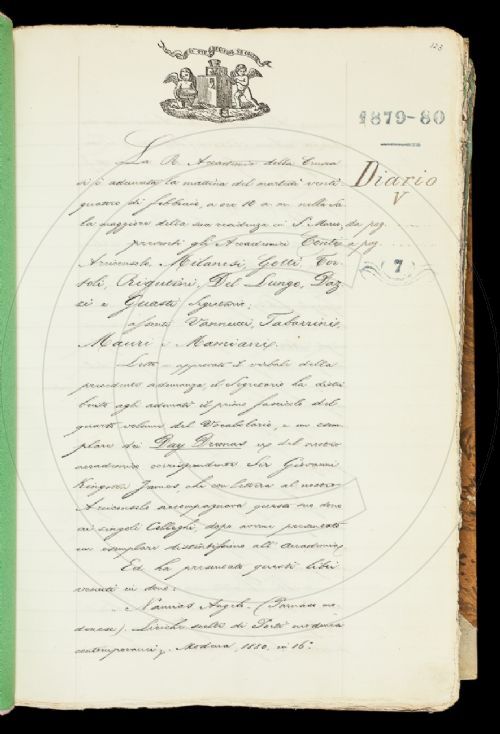 123
1879-80
Diario
V
da pag.
a pag.
7
La R. Accademia della Crusca
si è adunata la mattina del martedì venti-
quattro di febbraio, a ore 10 a. m. nella sa-
la maggiore della sua residenza in S. Marco,
presenti gli Accademici Conti,
Arciconsolo, Milanesi, Gotti, Tor-
toli, Rigutini, Del Lungo, Daz-
zi e Guasti Segretario;
assenti Vannucci, Tabarrini,
Mauri e Mamiani.
Letto e approvato il verbale della
precedente adunanza, il Segretario ha distri-
buito agli adunati il primo fascicolo del
quarto volume del Vocabolario, e un esem-
plare dei Day Dreams del nostro
accademico corrispondente Ser Giovanni
Kingston James, che con lettera al nostro
Arciconsolo accompagnava questo suo dono
ai singoli Colleghi, dopo averne presentato
un esemplare distintissimo all'Accademia.
Ed ha presentato questi libri
venuti in dono:
Namias Angelo. (Parnaso mo-
denese). Liriche scelte di Poeti modenesi
contemporanei. Modena, 1880, in 16°.